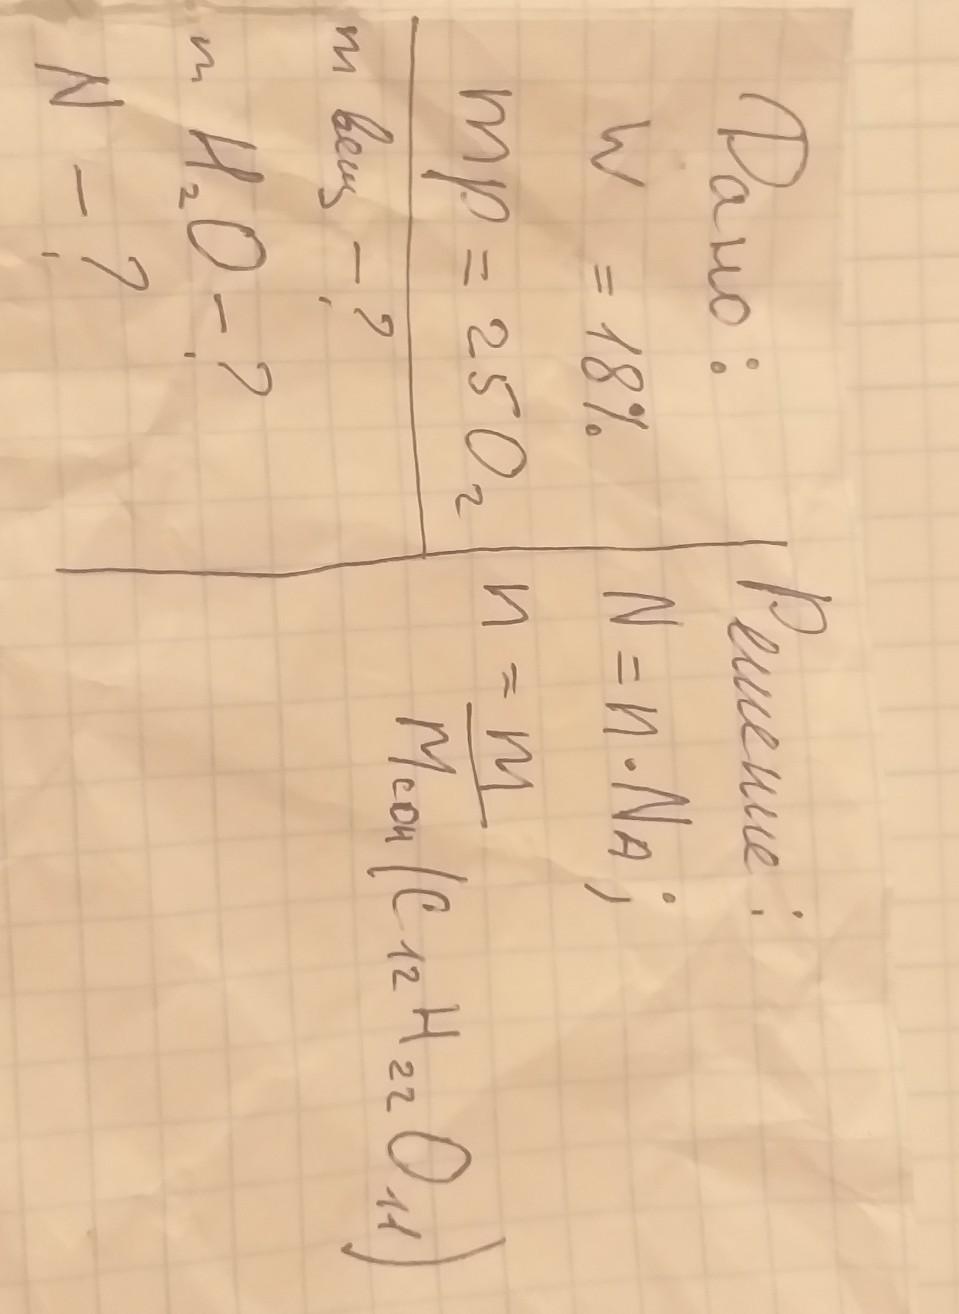 Дано:
W = 18%
mр = 250г
m вещ - ?
m H₂O - ?
N - ?
Решение:
N = n · NA;
n = m
Mсон (C₁₂H₂₂O₁₁)